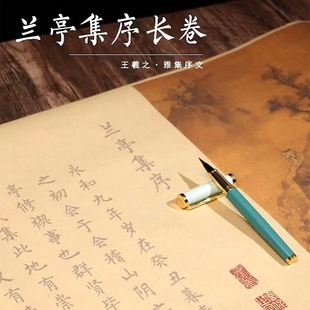 兰亭集序长卷
王羲之·雅集序文
兰亭集序
永和九年岁在癸丑暮
之初会于会稽山阴
亭修禊事也群贤
集此地有崇